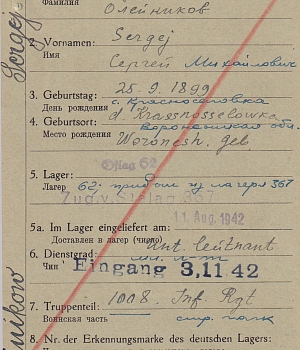 Фамилия
Олейников
2. Vornamen: Sergej
Имя Сергей Михайлович
3. Geburtstag: 25.9.1899
День рождения с. Красноселовка
4. Geburtsort: d. Krassnosselowka
Место рождения Воронежская обл.
Woronesh. geb
5. Lager: Oflag 62
Лагер 62. прибыл из лагеря 367
Zug. v. Stalag 367
11. Aug. 1942
5a. Im Lager eingeliefert am:
Доставлен в лагер (число)
6. Dienstgrad: Unt. leutnant
Чин мл. л-т
Eingang 3.11.42
7. Truppenteil: 1008. Inf. Rgt
Воинская часть стр. полк
8. Nr. der Erkennungsmarke des deutschen Lagers:
Sergej
nikow